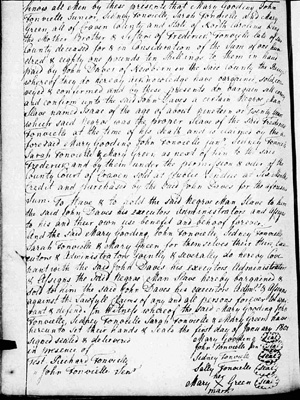 Know all Men by these presents that Mary Gooding John
Fonvielle Junior, Sidney Fonvielle, Sarah Fonvielle & Mary
Green all of Craven County and State of North Carolina being
the Mother Brother & Sisters of Frederick Fonvielle late of
County deceased for & in Consideration of the Sum of one hun
dred & eighty one pounds ten Shillings to them in hand
paid by John Daves of Newbern in the Sd County the
whereof they do hereby acknowledge have bargained sold
and confirmed and by these presents do bargain sell
and confirm unto the said John Daves a certain Negroe Man
Slave named of the age of about nineteen or twenty years
which said Negroe was the property of the said Frederick
Fonvielle at the time of his death and is
said Mary Gooding John Fonvielle Junr Sidney Fonvielle
Sarah Fonvielle & Mary Green as next of kin to the said
Frederick and by them under the permission & order of the
County Court of Craven sold at publick Vendue at Six Months
Credit and purchased by the said John Daves for the aforesaid
Sum. To Have & to Hold the said Negroe Man Slave to him
the said John Daves his executors administrators and assigns
to his and their own use benefit and behoof forever
And the said Mary Gooding, John Fonvielle, Sidney Fonvielle
Sarah Fonvielle & Mary Green for themselves their
Executors & Administrators jointly & severally do hereby
with the said John Daves his executors administrators
& Assigns the said Negroe Man Slave hereby bargained &
sold to him the said John Daves his executors
against the lawfull Claims of any and all persons forever to
and defend. In Witness whereof the said Mary Gooding John
Fonvielle, Sidney Fonvielle Sarah Fonvielle & Mary Green have
hereunto set their hands & Seals the first day of January
Signed sealed & delivered
in presence of
Mary Gooding (Seal)
John Fonvielle Jun (Seal)
Sidney Fonvielle (Seal)
Sally Fonvielle (Seal)
her
Mary X Green (Seal)
mark
Test Richard Fonvielle
John Fonvielle Senr